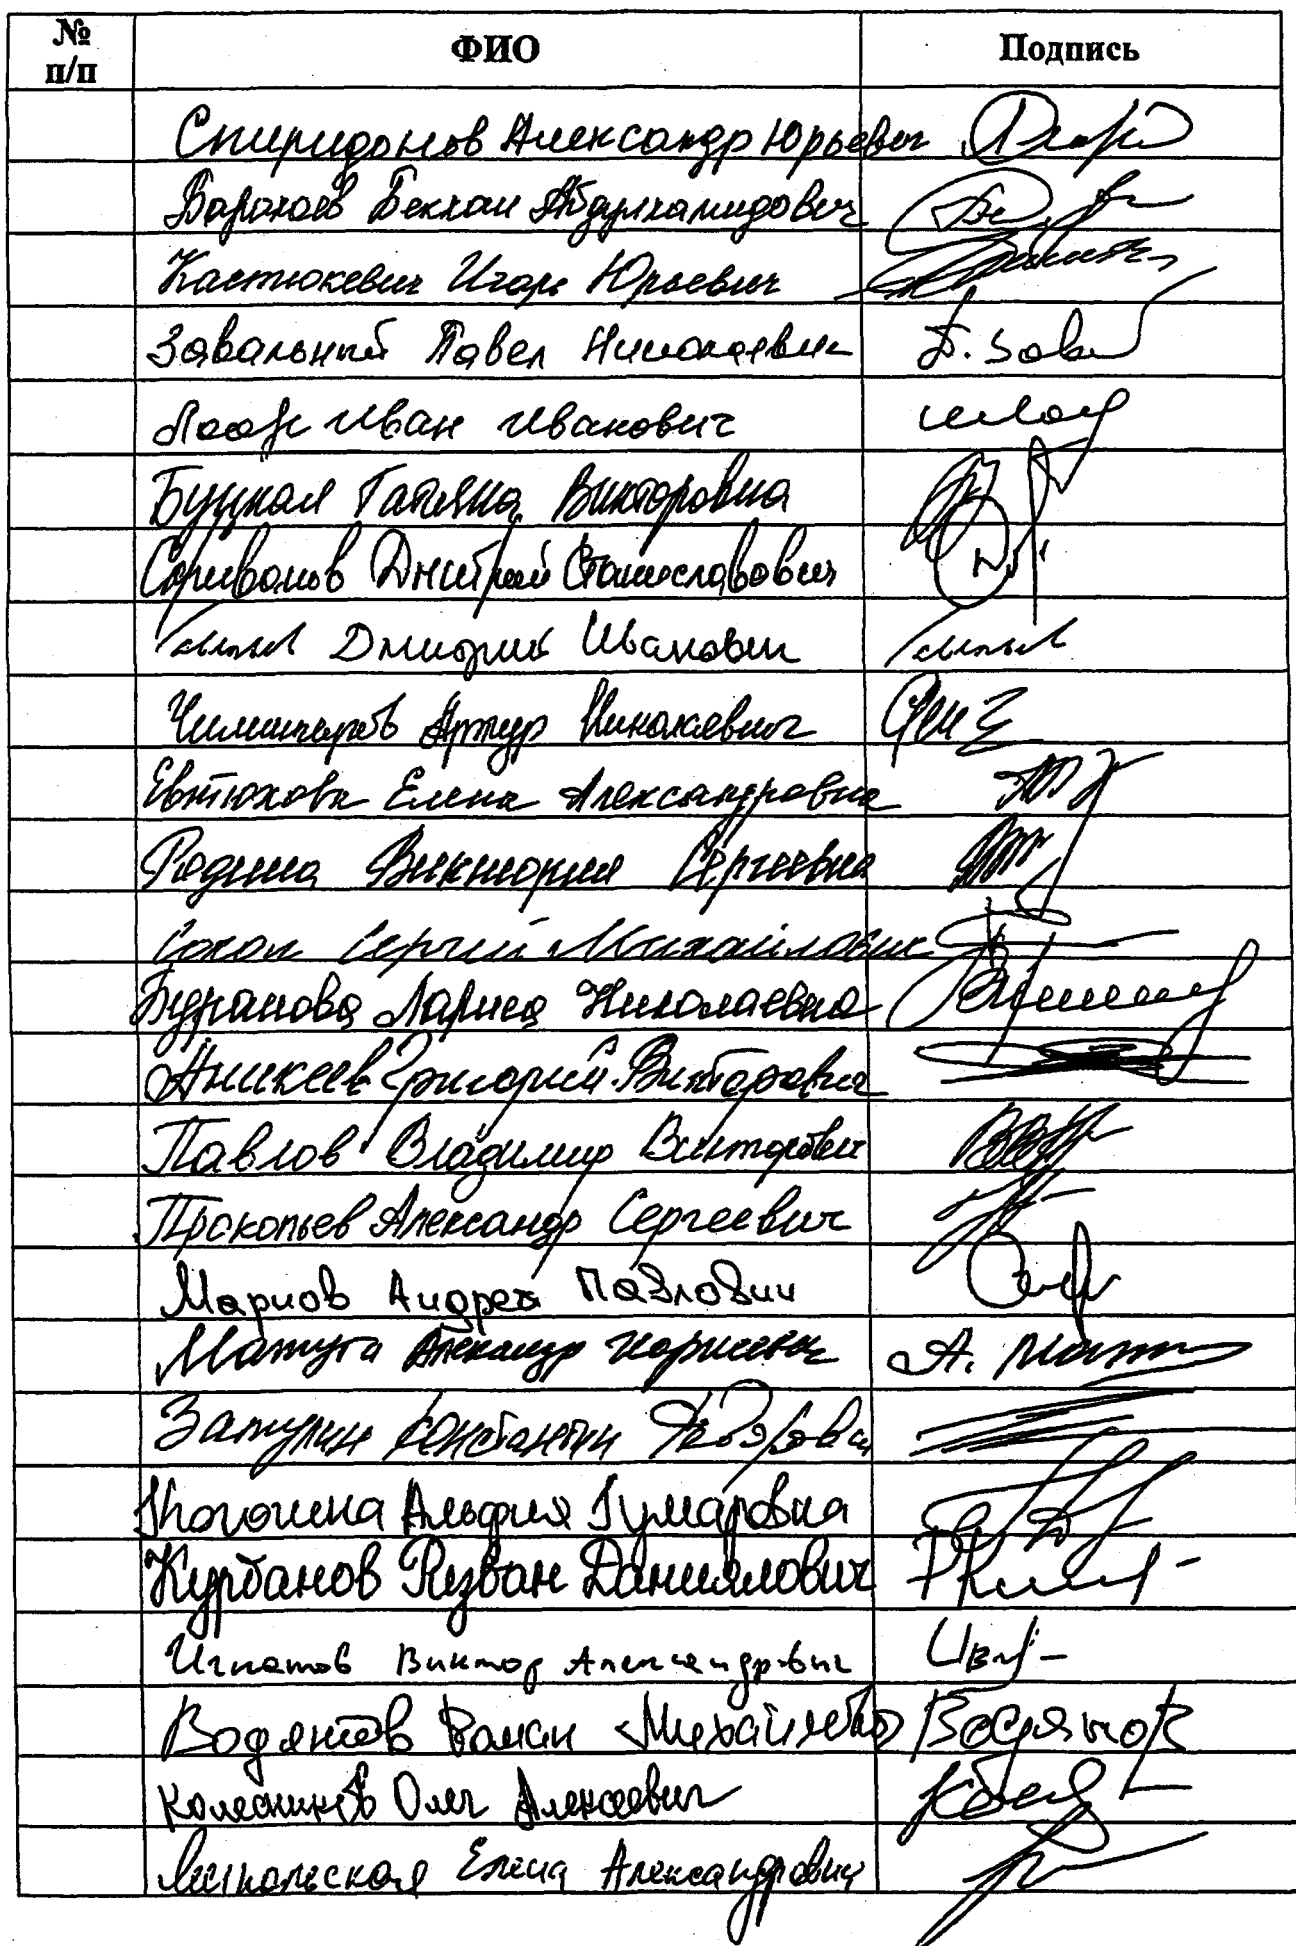 № п/п ФИО Подпись
Спиридонов Александр Юрьевич
Барахоев Бекхан Абдулхамидович
Кастюкевич Игорь Юрьевич
Завальный Павел Николаевич П. Завал
Лоор Иван Иванович
Буцкая Татьяна Викторовна
Скриванов Дмитрий Станиславович
Дмитрий Иванович
Чилингаров Артур Николаевич
Евтюхова Елена Александровна
Родина Виктория Сергеевна
Сокол Сергей Михайлович
Буранова Лариса Николаевна
Аникеев Григорий Викторович
Павлов Владимир Викторович
Прокопьев Александр Сергеевич
Марков Андрей Павлович
Мажуга Александр Георгиевич
Затулин Константин Федорович
Когогина Альфия Гумаровна
Курбанов Ризван Даниялович
Игнатов Виктор Александрович
Водянов Роман Михайлович Водянов
Колесников Олег Алексеевич
Елена Александровна